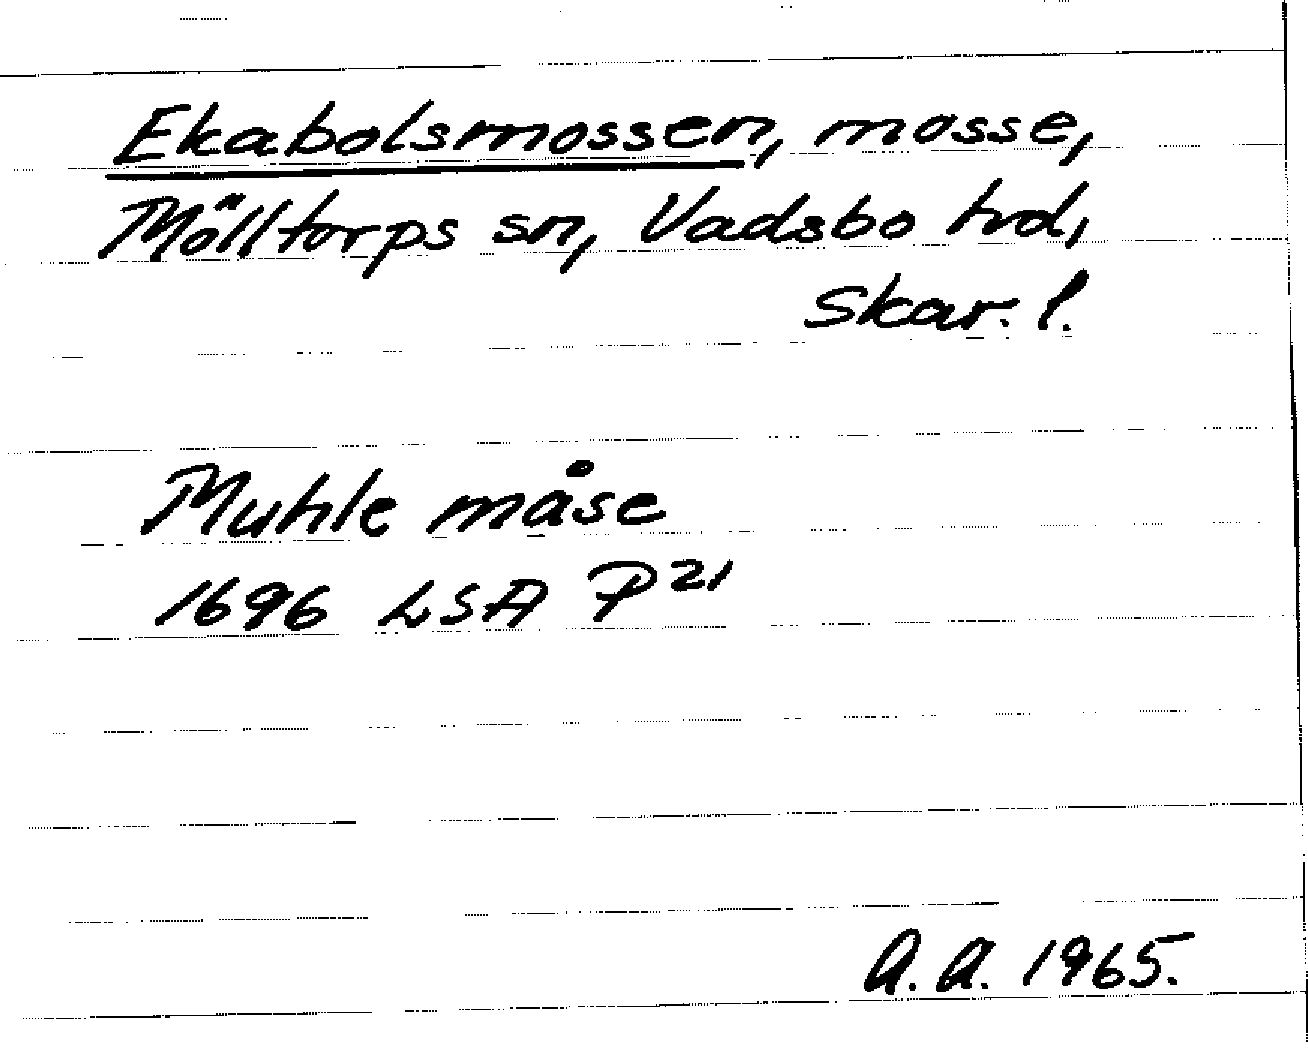 Ekabolsmossen, mosse,
Mölltorps sn, Vadsbo hd,
Skar. l.
Muhle måse
1696 LSA P 21
A. A. 1965.